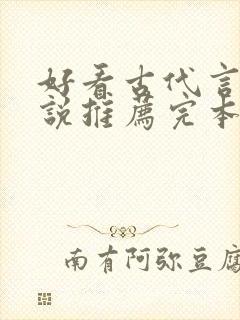 好看古代言
说推薦完本
南有阿弥豆腐